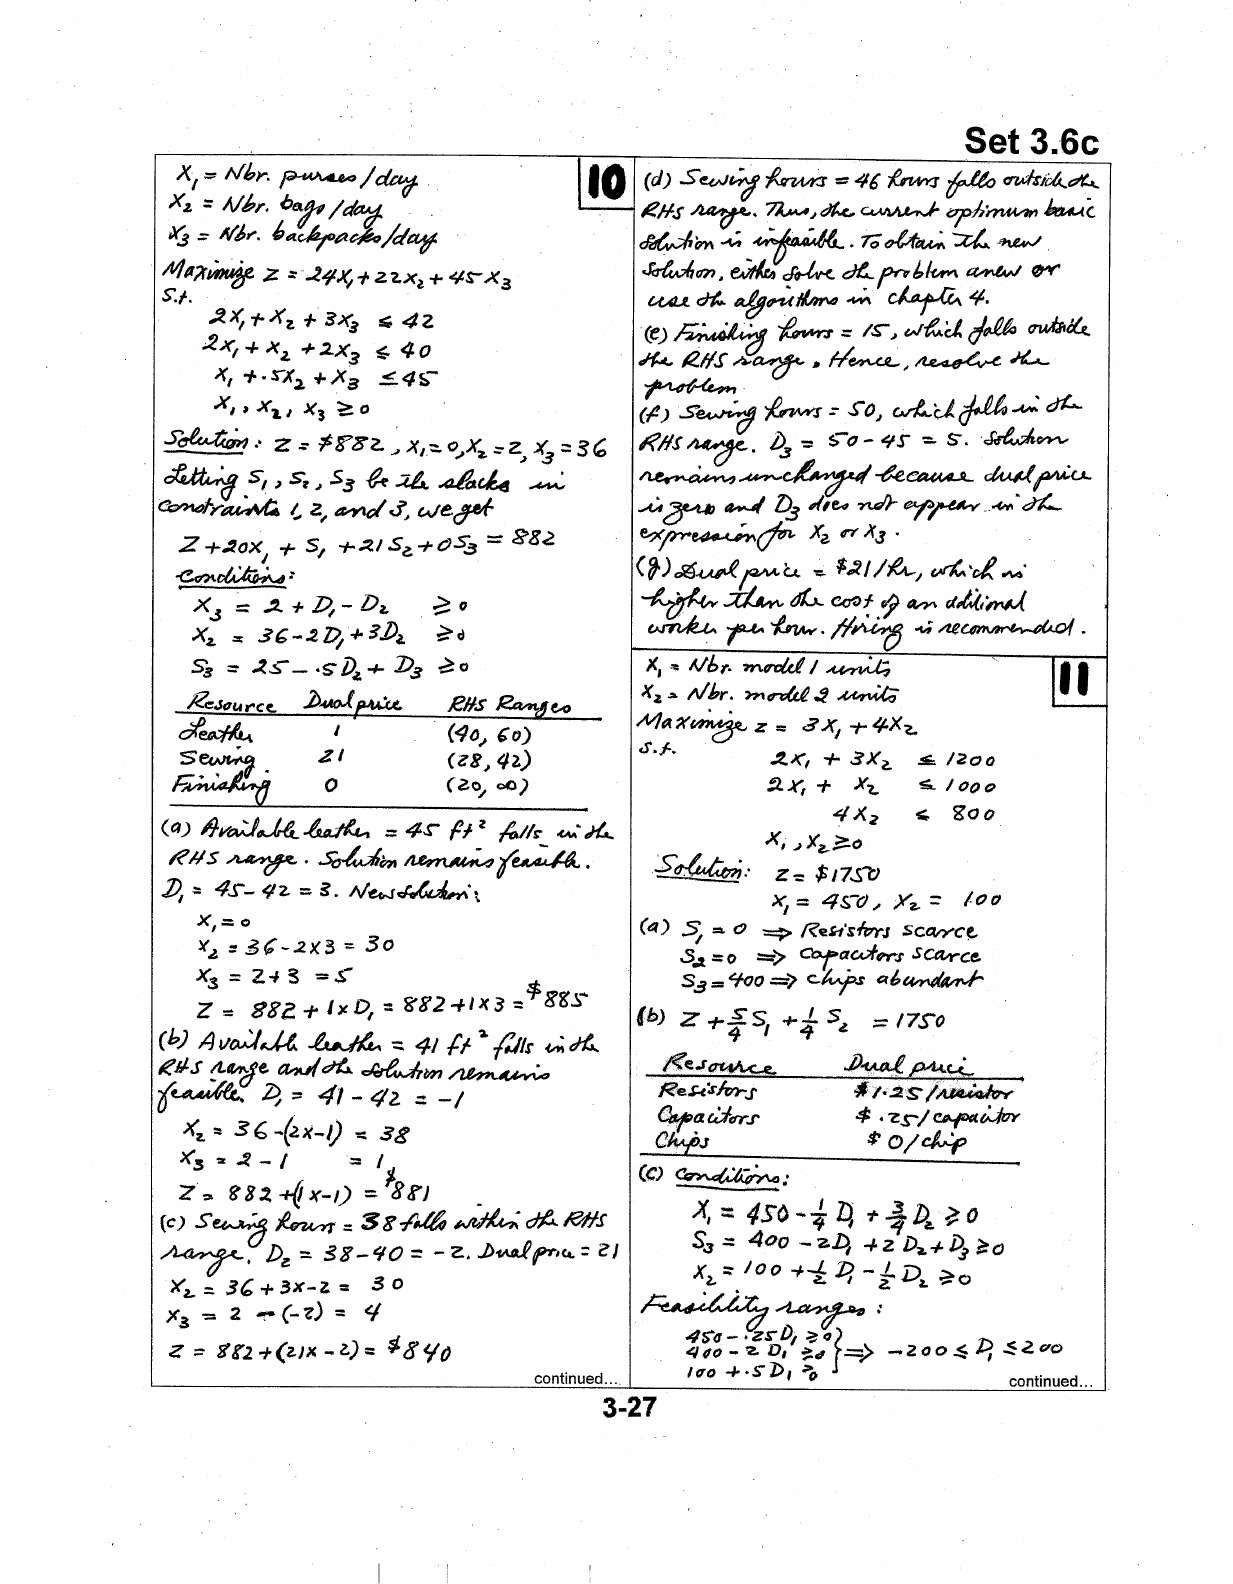 Set 3.6c
10
X₁ = Nbr. purses/day
X₂ = Nbr. bags/day
X₃ = Nbr. backpacks/day
Maximize Z = 24X₁ + 22X₂ + 45X₃
S.t.
2X₁ + X₂ + 3X₃ ≤ 42
2X₁ + X₂ + 2X₃ ≤ 40
X₁ + .5X₂ + X₃ ≤ 45
X₁, X₂, X₃ ≥ 0
Solution: Z = $882, X₁ = 0, X₂ = 2, X₃ = 36
Letting S₁, S₂, S₃ be the slacks in
constraints 1, 2, and 3, we get
Z + 20X₁ + S₁ + 21S₂ + 0S₃ = 882
Conditions:
X₃ = 2 + D₁ - D₂ ≥ 0
X₂ = 36 - 2D₁ + 3D₂ ≥ 0
S₃ = 25 - .5D₂ + D₃ ≥ 0
Resource Dual price RHS Ranges
Leather 1 (40, 60)
Sewing 21 (28, 42)
Finishing 0 (20, ∞)
(a) Available leather = 45 ft² falls in the
RHS range. Solution remains feasible.
D₁ = 45 - 42 = 3. New solution:
X₁ = 0
X₂ = 36 - 2X3 = 30
X₃ = 2 + 3 = 5
Z = 882 + 1xD₁ = 882 + 1X3 = $885
(b) Available leather = 41 ft² falls in the
RHS range and the solution remains
feasible. D₁ = 41 - 42 = -1
X₂ = 36 -(2x-1) = 38
X₃ = 2 - 1 = 1
Z = 882 +(1x-1) = $881
(c) Sewing hours = 38 falls within the RHS
range. D₂ = 38 - 40 = -2. Dual price = 21
X₂ = 36 + 3x-2 = 30
X₃ = 2 - (-2) = 4
Z = 882 + (21x-2) = $840
continued...
(d) Sewing hours = 46 hours falls outside the
RHS range. Thus, the current optimum basic
solution is infeasible. To obtain the new
solution, either solve the problem anew or
use the algorithms in chapter 4.
(e) Finishing hours = 15, which falls outside
the RHS range. Hence, resolve the
problem
(f) Sewing hours = 50, which falls in the
RHS range. D₃ = 50 - 45 = 5. Solution
remains unchanged because dual price
is zero and D₃ does not appear in the
expression for X₂ or X₃.
(g) Dual price = $21/hr, which is
higher than the cost of an additional
worker per hour. Hiring is recommended.
11
X₁ = Nbr. model 1 units
X₂ = Nbr. model 2 units
Maximize z = 3X₁ + 4X₂
S.t.
2X₁ + 3X₂ ≤ 1200
2X₁ + X₂ ≤ 1000
4X₂ ≤ 800
X₁, X₂ ≥ 0
Solution: Z = $1750
X₁ = 450, X₂ = 100
(a) S₁ = 0 ⇒ Resistors scarce
S₂ = 0 ⇒ Capacitors scarce
S₃ = 400 ⇒ chips abundant
(b) Z + 5/4 S₁ + 1/4 S₂ = 1750
Resource Dual price
Resistors $1.25/resistor
Capacitors $.25/capacitor
Chips $0/chip
(c) Conditions:
X₁ = 450 - 1/4 D₁ + 3/4 D₂ ≥ 0
S₃ = 400 - 2D₁ + 2D₂ + D₃ ≥ 0
X₂ = 100 + 1/2 D₁ - 1/2 D₂ ≥ 0
Feasibility ranges:
450 - .25D₁ ≥ 0
400 - 2D₁ ≥ 0 } ⇒ -200 ≤ D₁ ≤ 200
100 + .5D₁ ≥ 0
continued...
3-27